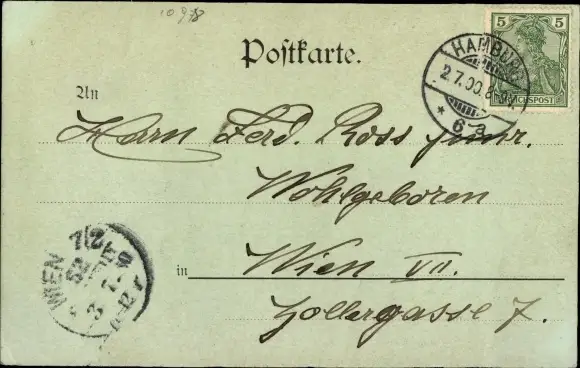 10978
Postkarte.
5 5
REICHSPOST
HAMBURG
2.7.00.8-9
* 6 a.
An
Herrn Ferd. Ross junr.
Wohlgeboren
in Wien VII.
Zollergasse 7.
WIEN 7/2